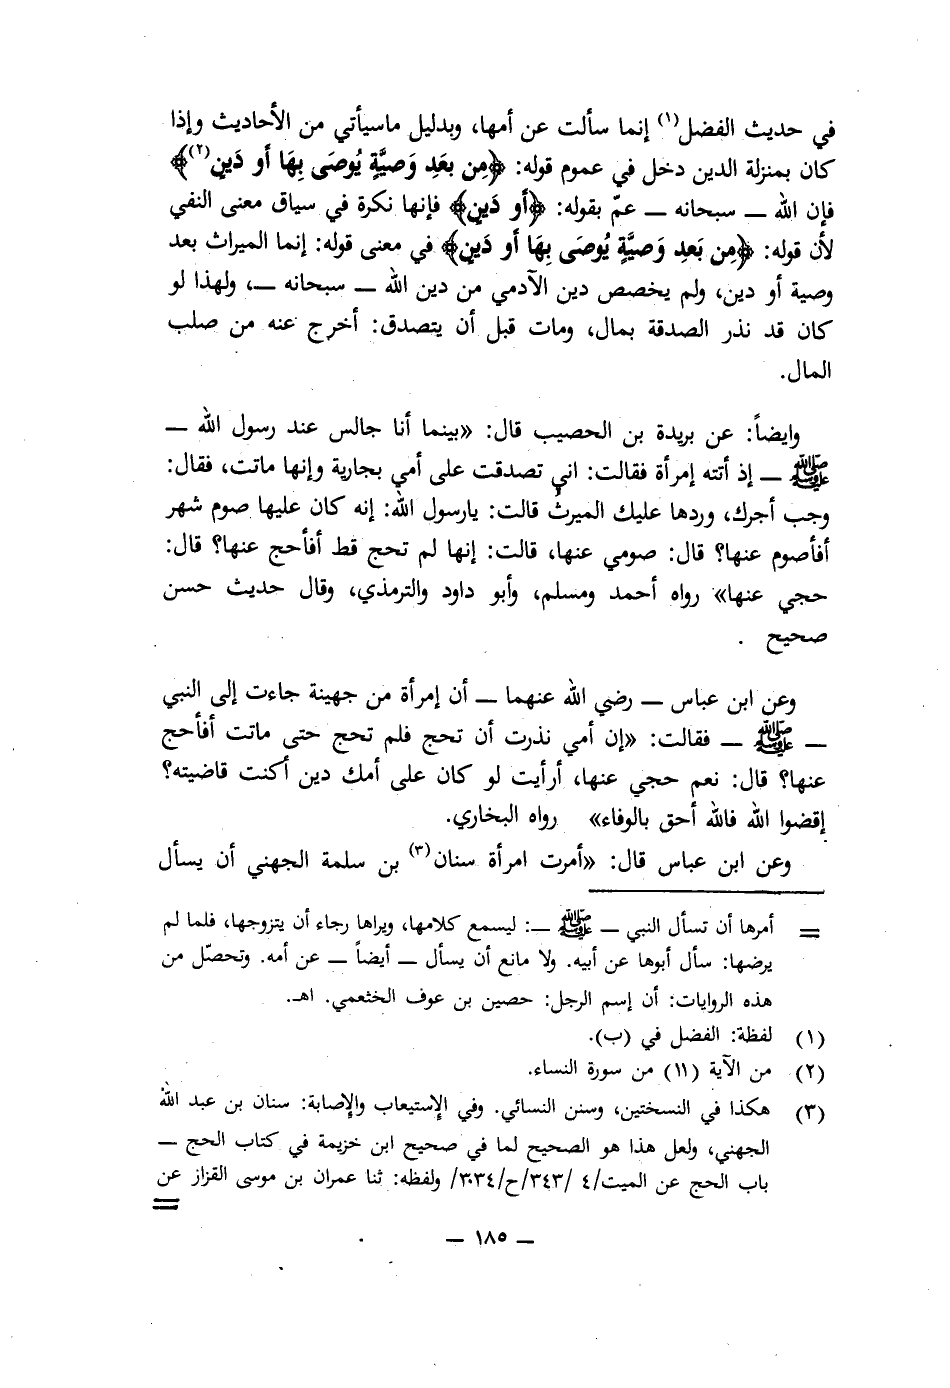 في حديث الفضل(١) إنما سألت عن أمها، وبدليل ماسيأتي من الأحاديث وإذا
كان بمنزلة الدين دخل في عموم قوله: ﴿مِن بعَدِ وَصيَّةٍ يُوصَى بِهَا أَو دَينٍ(٢)﴾
فإن الله ــ سبحانه ــ عمّ بقوله: ﴿أو دَينٍ﴾ فإنها نكرة في سياق معنى النفي
لأن قوله: ﴿مِن بَعدِ وَصيَّةٍ يُوصَى بِهَا أو دَينٍ﴾ في معنى قوله: إنما الميراث بعد
وصية أو دين، ولم يخصص دين الآدمي من دين الله ــ سبحانه ــ، ولهذا لو
كان قد نذر الصدقة بمال، ومات قبل أن يتصدق: أخرج عنه من صلب
المال.
وايضاً: عن بريدة بن الحصيب قال: «بينما أنا جالس عند رسول الله ــ
ﷺ ــ إذ أتته إمرأة فقالت: اني تصدقت على أمي بجارية وإنها ماتت، فقال:
وجب أجرك، وردها عليك الميرثُ قالت: يارسول الله: إنه كان عليها صوم شهر
أفأصوم عنها؟ قال: صومي عنها، قالت: إنها لم تحج قط أفأحج عنها؟ قال:
حجي عنها» رواه أحمد ومسلم، وأبو داود والترمذي، وقال حديث حسن
صحيح .
وعن ابن عباس ــ رضي الله عنهما ــ أن إمرأة من جهينة جاءت إلى النبي
ــ ﷺ ــ فقالت: «إن أمي نذرت أن تحج فلم تحج حتى ماتت أفأحج
عنها؟ قال: نعم حجي عنها، أرأيت لو كان على أمك دين أكنت قاضيته؟
إقضوا الله فالله أحق بالوفاء» رواه البخاري.
وعن ابن عباس قال: «أمرت امرأة سنان(٣) بن سلمة الجهني أن يسأل
= أمرها أن تسأل النبي ــ ﷺ ــ: ليسمع كلامها، ويراها رجاء أن يتزوجها، فلما لم
يرضها: سأل أبوها عن أبيه. ولا مانع أن يسأل ــ أيضاً ــ عن أمه. وتحصّل من
هذه الروايات: أن إسم الرجل: حصين بن عوف الخثعمي. اهـ.
(١) لفظة: الفضل في (ب).
(٢) من الآية (١١) من سورة النساء.
(٣) هكذا في النسختين، وسنن النسائي. وفي الإستيعاب والإصابة: سنان بن عبد الله
الجهني، ولعل هذا هو الصحيح لما في صحيح ابن خزيمة في كتاب الحج ــ
باب الحج عن الميت/٤ /٣٤٣/ح/٣٠٣٤/ ولفظه: ثنا عمران بن موسى القزاز عن
=
ــ ١٨٥ ــ